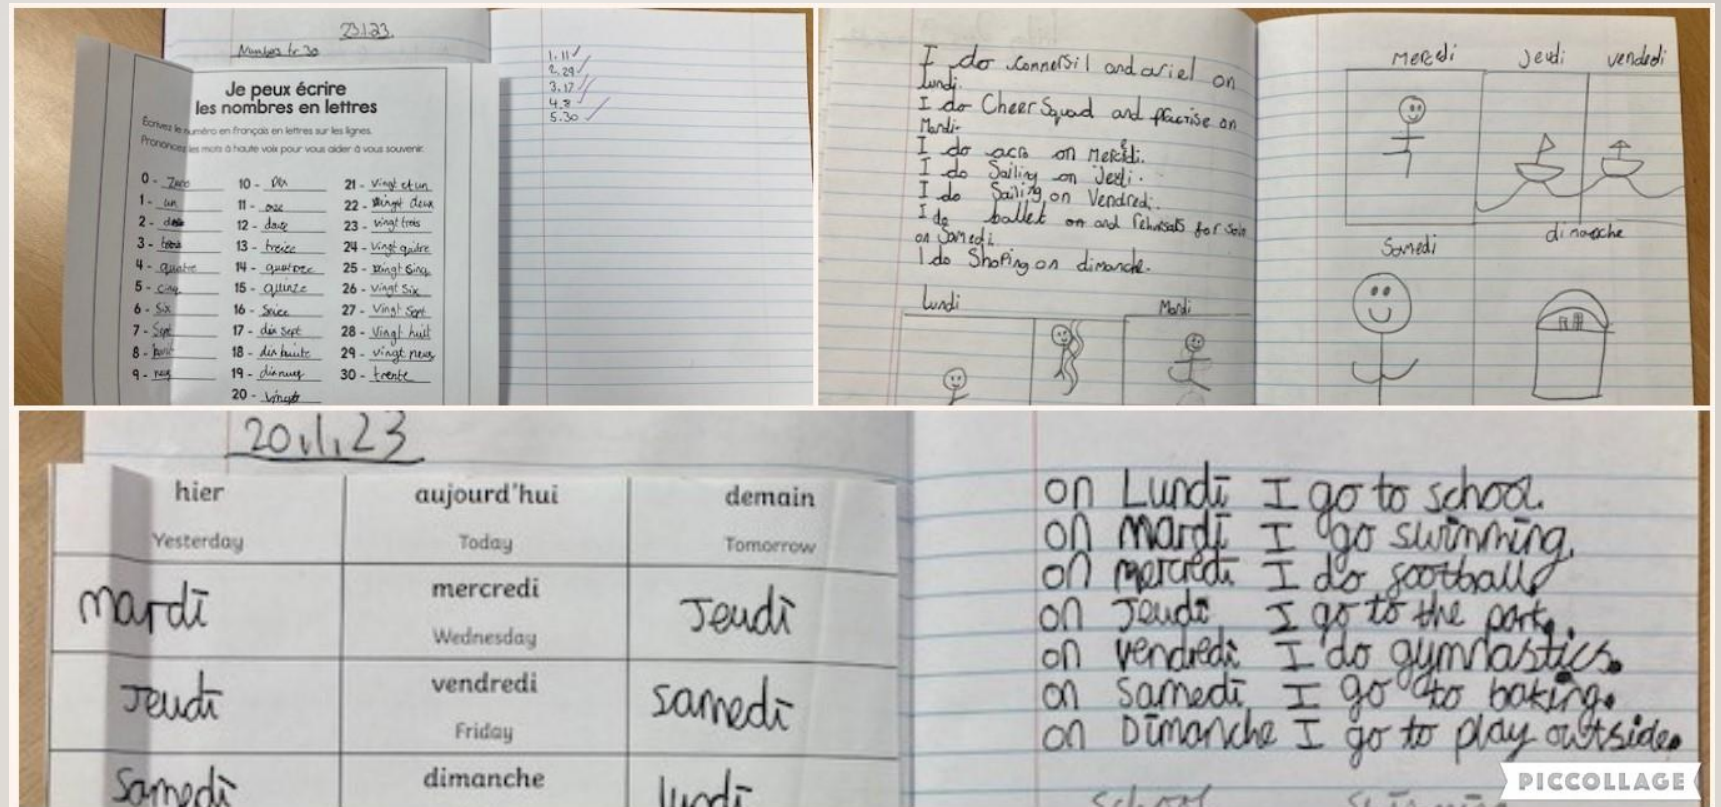 23.1.23.
Numbers to 30
Je peux écrire
les nombres en lettres
Écrivez le numéro en français en lettres sur les lignes.
Prononcez les mots à haute voix pour vous aider à vous souvenir.
0 - Zero
1 - un
2 -
3 -
4 - quatre
5 - cinq
6 - Six
7 - Sept
8 -
9 -
10 -
11 -
12 -
13 - treice
14 -
15 -
16 - Seice
17 - dix sept
18 -
19 -
20 -
21 - Vingt et un
22 - Vingt deux
23 - vingt trois
24 - Vingt
25 - vingt
26 - vingt Six
27 - Vingt Sept
28 - Vingt huit
29 - vingt
30 - trente
1. 11
2. 29
3. 17
4. 8
5. 30
I do and ariel on
Lundi.
I do Cheer Squad and on
Mardi.
I do acro on
I do Sailing on
I do Sailing on Vendredi.
I do ballet on and for
on Samedi.
I do Shoping on dimanche.
Lundi
Mardi
Jeudi
vendedi
Samedi
dimanche
20.1.23
hier aujourd'hui demain
Yesterday Today Tomorrow
mardi mercredi Jeudi
Wednesday
Jeudi vendredi samedi
Friday
Samedi dimanche lundi
on Lundi I go to school.
on mardi I go swimming.
on mercredi I do football
on Jeudi I go to the park.
on vendredi I do gymnastics.
on Samedi I go to baking.
on Dimanche I go to play outside.
school
PICCOLLAGE